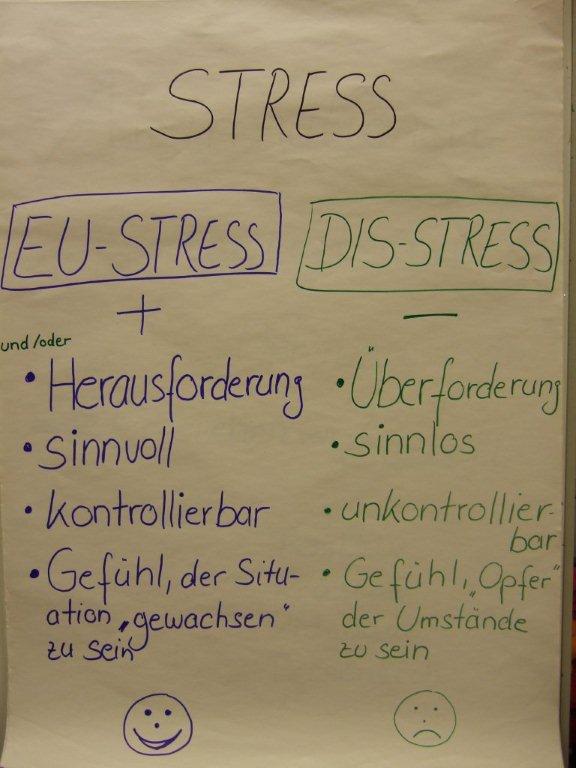 STRESS
EU-STRESS
+
und/oder
• Herausforderung
• sinnvoll
• kontrollierbar
• Gefühl, der Situ-
ation „gewachsen“
zu sein
DIS-STRESS
—
• Überforderung
• sinnlos
• unkontrollier-
bar
• Gefühl, „Opfer“
der Umstände
zu sein